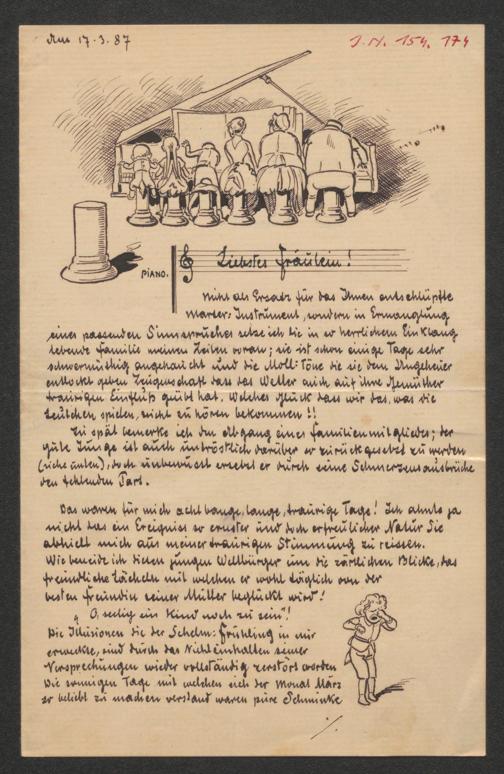 Am 17.3.87
J. N. 154. 174
PIANO.
Liebstes Fräulein!
Nicht als Ersatz für das Ihnen entschlüpfte
Marter-Instrument, sondern in Ermanglung
eines passenden Sinnspruches setze ich die in so herrlichem Einklang
lebende Familie meinen Zeilen voran; sie ist schon einige Tage sehr
schwermüthig angehaucht und die Moll-Töne die sie dem Ungeheuer
entlockt geben Zeugenschaft dass das Wetter auch auf ihre Gemüther
traurigen Einfluß geübt hat. Welches Glück dass wir das, was die
Leutchen spielen, nicht zu hören bekommen!!
Zu spät bemerke ich den Abgang eines Familienmitgliedes; der
gute Junge ist auch untröstlich darüber so zurückgesetzt zu werden
(siehe unten), doch unbewusst ersetzt er durch seine Schmerzensausbrüche
den fehlenden Part.
Das waren für mich acht bange, lange, traurige Tage! Ich ahnte ja
nicht das ein Ereigniss so ernster und doch erfreulicher Natur Sie
abhielt mich aus meiner traurigen Stimmung zu reissen.
Wie beneide ich diesen jungen Weltbürger um die zärtlichen Blicke, das
freundliche Lächeln mit welchen er wohl täglich von der
besten Freundin seiner Mutter beglückt wird!
"O, seelig ein Kind noch zu sein"!
Die Illusionen die der Schelm: Frühling in mir
erweckte, sind durch das Nichteinhalten seiner
Versprechungen wieder vollständig zerstört worden
Die sonnigen Tage mit welchen sich der Monat März
so beliebt zu machen verstand waren pure Schminke
./.